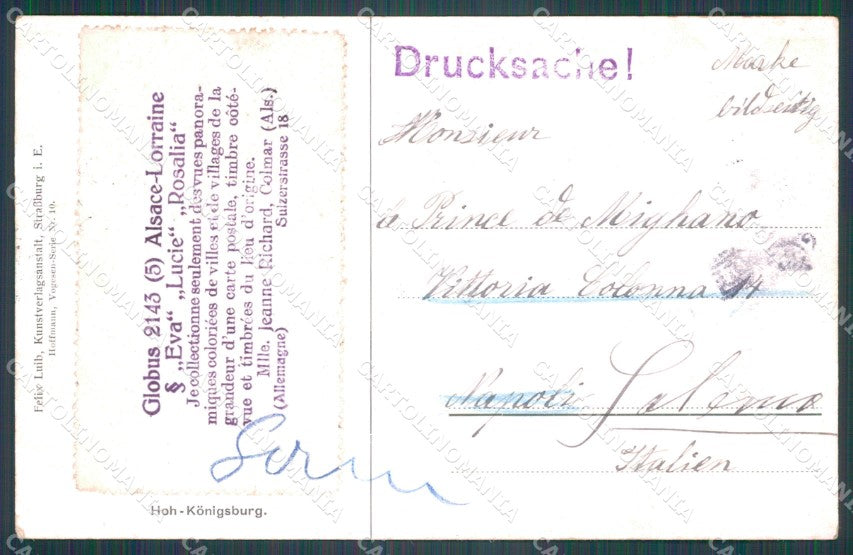 Felix Luib, Kunstverlagsanstalt, Straßburg i. E.
Hoffmann, Vogesen-Serie Nr. 10.
Globus 2143 (5) Alsace-Lorraine
§ „Eva“ „Lucie“ „Rosalia“
Je collectionne seulement des vues panora-
miques coloriées de villes et de villages de la
grandeur d'une carte postale, timbre côté-
vue et timbrées du lieu d'origine.
Mlle. Jeanne Richard, Colmar (Als.)
(Allemagne) Sulzerstrasse 18
Hoh-Königsburg.
Drucksache!
Marke
bildseitig
Monsieur
à Prince de Mighano
Vittoria Colonna 14
Napoli Salerno
Italien
CARTOLINOMANIA